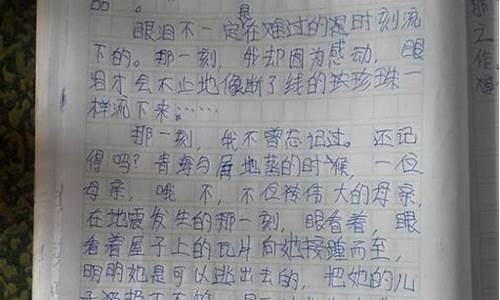 品。
眼泪不一定在难过的是时刻流
下的。那一刻,我却因为感动,眼
泪才会不止地像断了线的珍珠一
样流下来……
那一刻,我不曾忘记过。还记
得吗?青海与屠地蒸的时候,一位
母亲,哦 不,不但伟大的母亲
在地震发生的那一刻,眼看着,眼
看着屋子上的瓦片向她接踵而至,
明明她是可以逃出去的,把她的儿